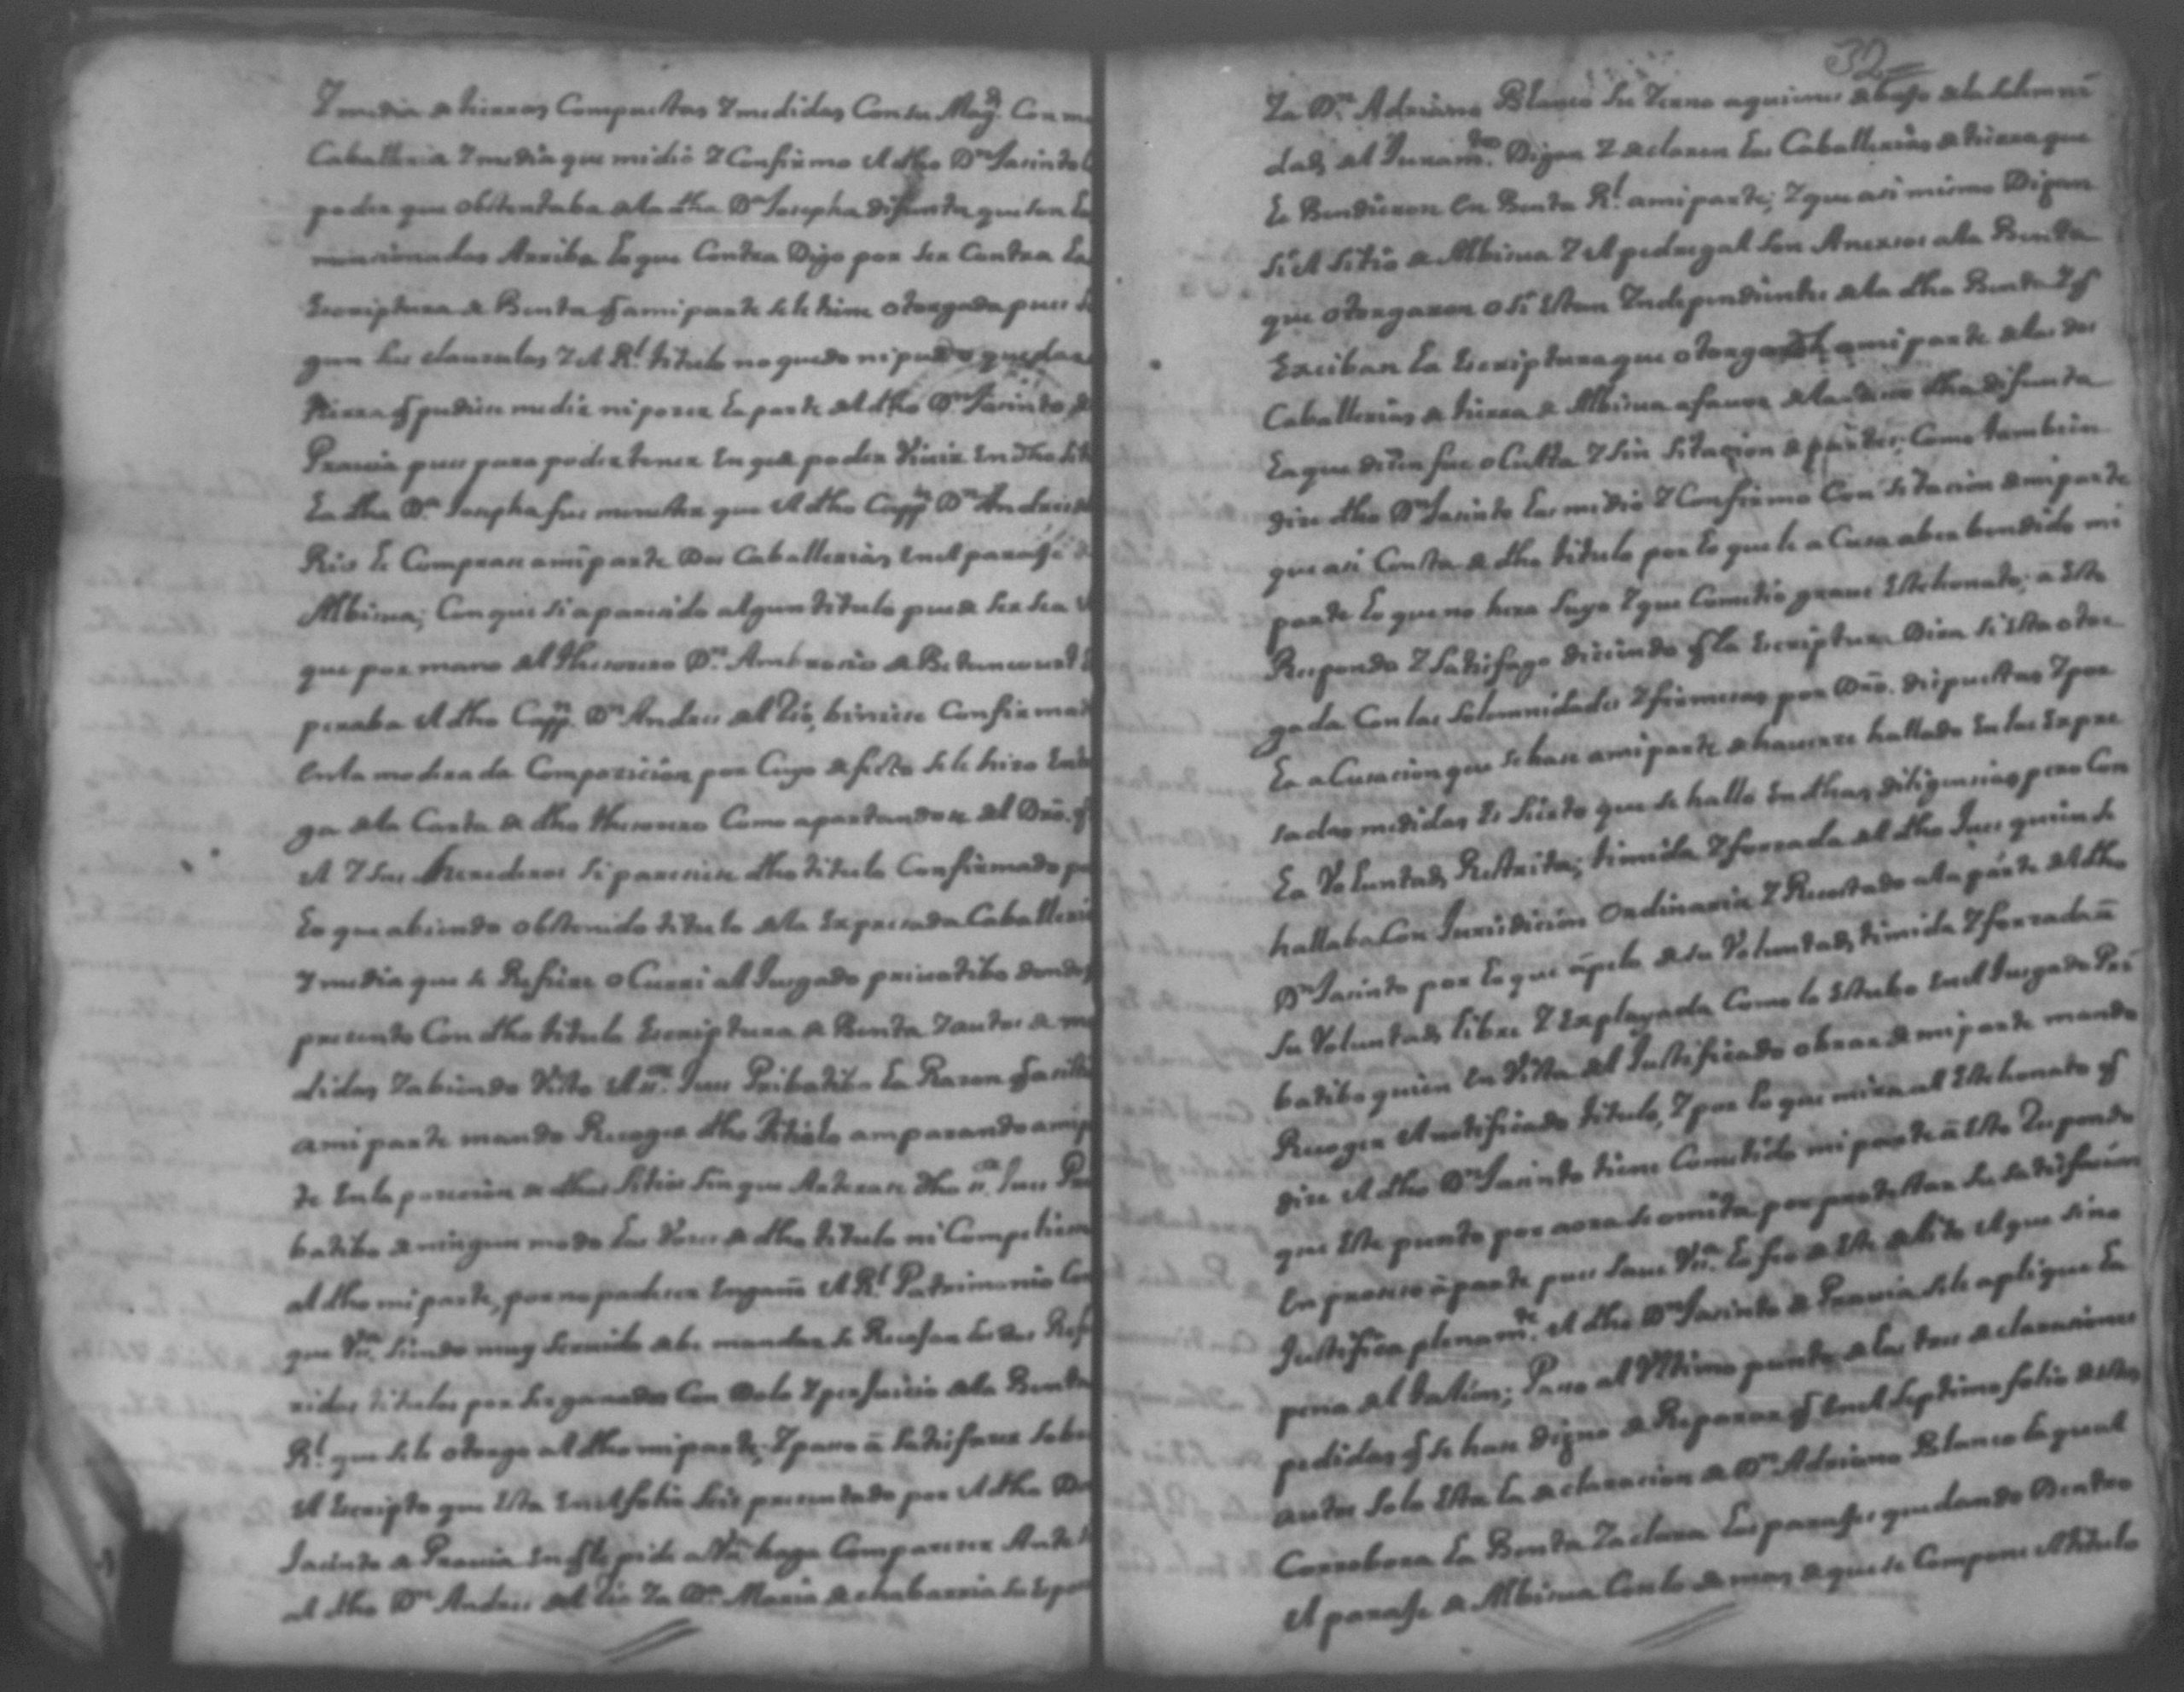 Y media de tierras Compuestas Y medidas Con su Magd. Con
Caballeria Y media que midió Y Confirmo el dho Dn Jacinto
poder que obstentaba de la dha Da Josepha difunta que son
mencionadas Arriba lo que Contra Digo por ser Contra la
Escriptura de Benta q a mi parte se le tiene otorgada pues
gun las clausulas Y el Rl titulo no quedo ni pudo quedar
tierra q pudiese medir ni poseer la parte del dho Dn Jacinto de
Pravia pues para poder tener en que poder Vivir en dho
la dha Da Josepha fue menester que el dho Cappn Dn Andres del
Rio le Comprase a mi parte dos Caballerias en el paraje
Albisua; Con que si a parecido algun titulo puede ser sea
que por mano del thesorero Dn Ambrosio de Betancourt
peraba el dho Cappn Dn Andres del Rio, biniese Confirmado
en la moderada Composicion por Cuyo defecto se le hizo
ga de la Carta de dho thesorero Como apartandose del Dro. q
el Y sus herederos si pareciese dho titulo Confirmado
lo que abiendo obtenido titulo de la Expresada Caballeria
Y media que se Refiere oCurri al Jusgado privatibo donde
presento Con dho titulo Escriptura de Benta Y autos de me
didas Y abiendo Visto el Sr Jues Pribatibo la Rason q asiste
a mi parte mando Recoger dho titulo amparando a mi
te en la posecion de dhos sitios sin que Alterase dho Sr Jues
batibo de ningun modo las Voces de dho titulo ni
al dho mi parte, por no padecer Engaño el Rl Patrimonio
que siendo muy servido debe mandar se Recojan los dos
ridos titulos por ser ganados Con dolo Y perjuicio de la Benta
Rl que se le otorgo al dho mi parte; Y paso á satisfacer
el Escripto que Esta En el folio seis presentado por el dho Dn
Jacinto de Pravia En q le pide a haga Compareser Ante
al dho Dn Andres del Rio Y a Da Maria de chabarria su
32
Y a Dn Adriano Blanco su Yerno a quienes debajo de la solemni
dad del Juramto. Digan Y declaren las Caballerias de tierra que
le Bendieron en Benta Rl a mi parte; Y que asi mismo Digan
si el sitio de Albisua Y el pedregal son Anexsos a la Benta
que otorgaron o si Estan Yndependientes de la dha Benta Y q
Exciban la Escriptura que otorgo a mi parte de las dos
Caballerias de tierra de Albisua a favor de la dha difunta
la que disen fue oCulta Y sin sitacion de partes; Como tambien
dise dho Dn Jacinto las midió Y Confirmo Con sitacion de mi parte
que asi Consta de dho titulo por lo que le aCusa aber bendido mi
parte lo que no hera suyo Y que Cometió grave Estelionato; a Esto
Respondo Y satisfago diciendo q la Escriptura Dira si Esta otor
gada Con las solemnidades Y firmesas por Dro. dispuestas Y por
la aCusacion que se hase a mi parte de haverse hallado en las Expre
sadas medidas Es sierto que se hallo en dhas diligencias pero Con
la Voluntad Restrita; timida Y forsada del dho Jues quien se
hallaba Con Jurisdicion Ordinaria Y Recostado a la parte del dho
Dn Jacinto por lo que ápelo de su Voluntad timida Y forzada á
su Voluntad libre Y Explayada Como lo Estubo en el Jusgado Pri
batibo quien en Vista del Justificado obrar de mi parte mando
Recoger el notificado titulo, Y por lo que mira al Estelionato q
dise el dho Dn Jacinto tiene Cometido mi parte á Esto Respondo
que Este punto por aora se omita por protestar su satisfacion
en proceso á parte pues save lo feo de Este delito el que si no
Justifica plenamte. el dho Dn Jacinto de Pravia se le aplique la
pena del talion; Paso al Vltimo punto de las tres declaraciones
pedidas q se hase digno de Reparar q en el septimo folio de estos
autos solo Esta la declaracion de Dn Adriano Blanco la qual
Corrobora la Benta Y aclara los parajes quedando Dentro
el paraje de Albisua Con lo de mas de que se Compone el titulo